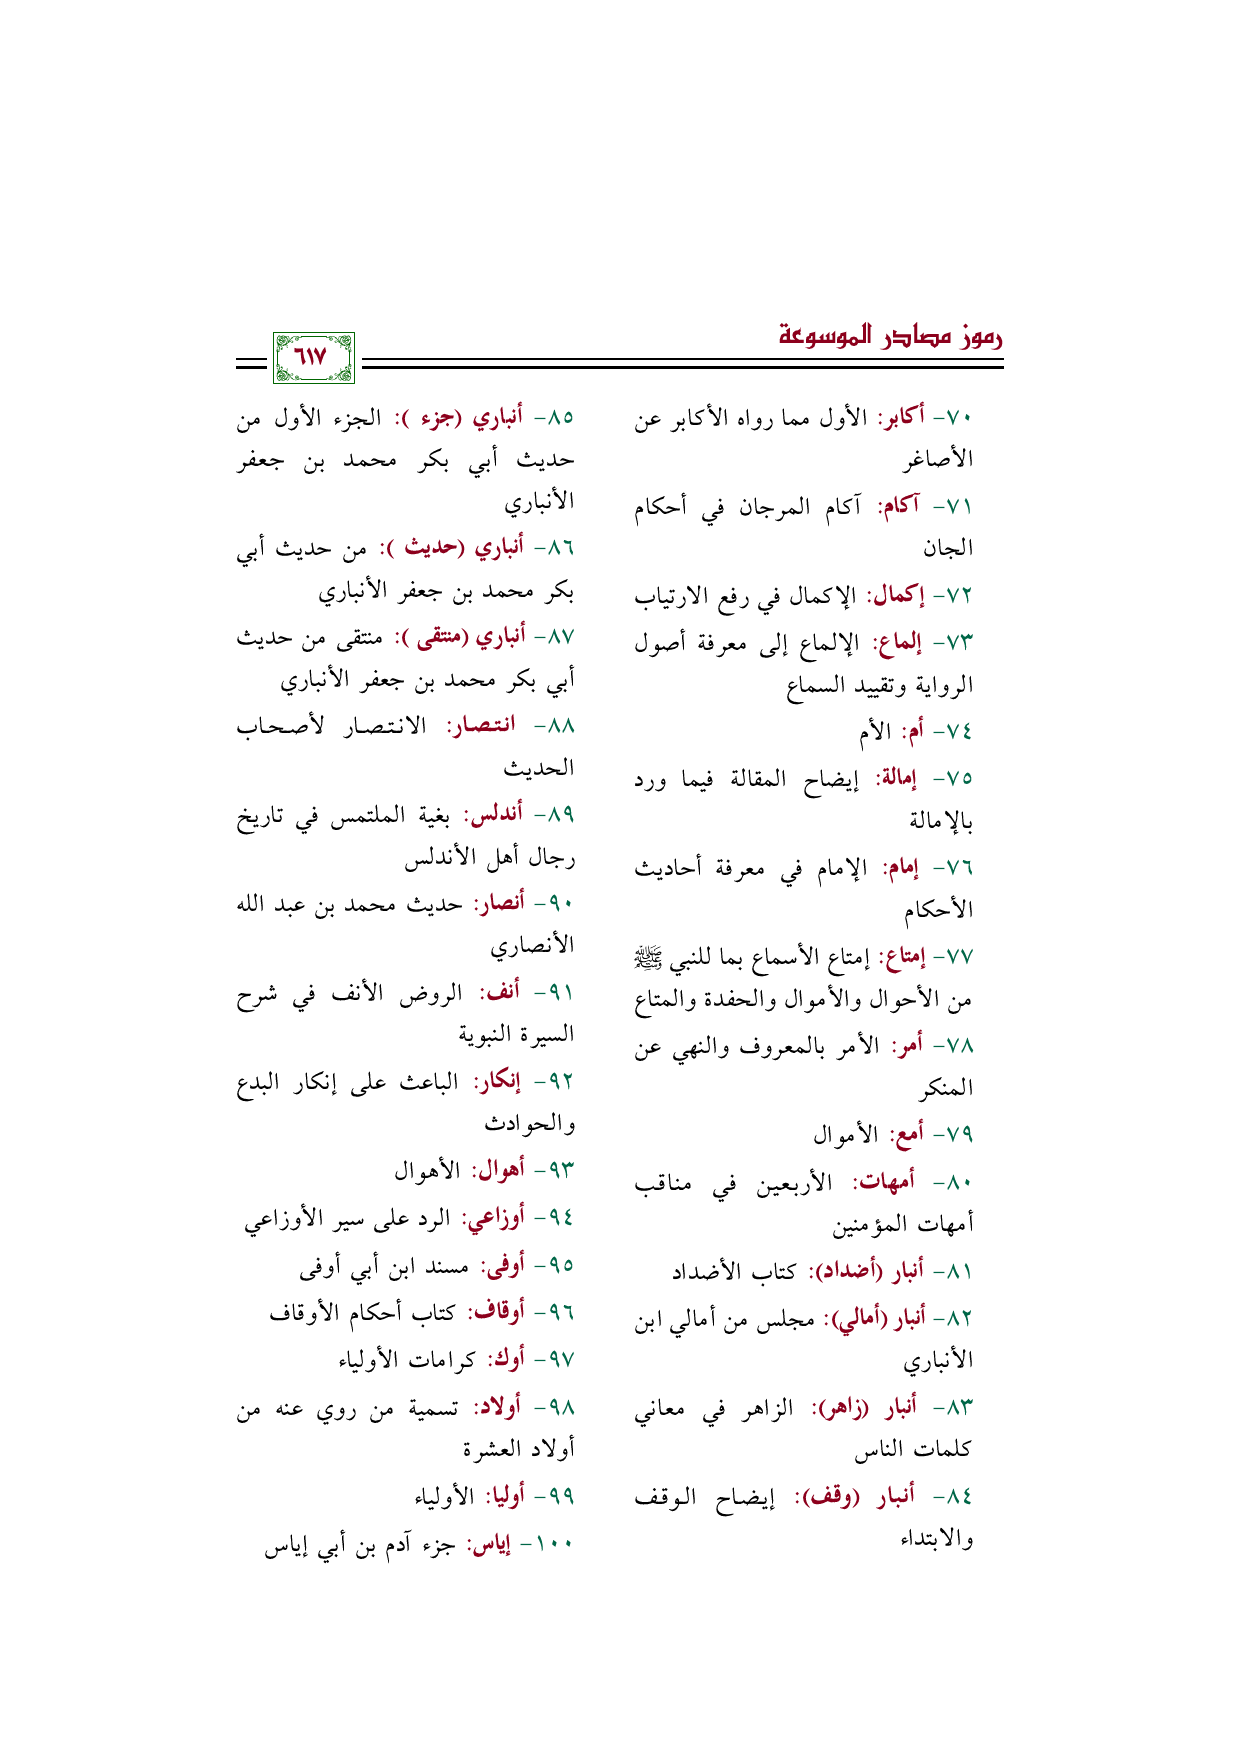 رموز مصادر الموسوعة
٦١٧
٧٠- أكابر: الأول مما رواه الأكابر عن
الأصاغر
٧١- آكام: آكام المرجان في أحكام
الجان
٧٢- إكمال: الإكمال في رفع الارتياب
٧٣- إلماع: الإلماع إلى معرفة أصول
الرواية وتقييد السماع
٧٤- أم: الأم
٧٥- إمالة: إيضاح المقالة فيما ورد
بالإمالة
٧٦- إمام: الإمام في معرفة أحاديث
الأحكام
٧٧- إمتاع: إمتاع الأسماع بما للنبي ﷺ
من الأحوال والأموال والحفدة والمتاع
٧٨- أمر: الأمر بالمعروف والنهي عن
المنكر
٧٩- أمع: الأموال
٨٠- أمهات: الأربعين في مناقب
أمهات المؤمنين
٨١- أنبار (أضداد): كتاب الأضداد
٨٢- أنبار (أمالي): مجلس من أمالي ابن
الأنباري
٨٣- أنبار (زاهر): الزاهر في معاني
كلمات الناس
٨٤- أنبار (وقف): إيضاح الوقف
والابتداء
٨٥- أنباري (جزء ): الجزء الأول من
حديث أبي بكر محمد بن جعفر
الأنباري
٨٦- أنباري (حديث ): من حديث أبي
بكر محمد بن جعفر الأنباري
٨٧- أنباري (منتقى ): منتقى من حديث
أبي بكر محمد بن جعفر الأنباري
٨٨- انتصار: الانتصار لأصحاب
الحديث
٨٩- أندلس: بغية الملتمس في تاريخ
رجال أهل الأندلس
٩٠- أنصار: حديث محمد بن عبد الله
الأنصاري
٩١- أنف: الروض الأنف في شرح
السيرة النبوية
٩٢- إنكار: الباعث على إنكار البدع
والحوادث
٩٣- أهوال: الأهوال
٩٤- أوزاعي: الرد على سير الأوزاعي
٩٥- أوفى: مسند ابن أبي أوفى
٩٦- أوقاف: كتاب أحكام الأوقاف
٩٧- أوك: كرامات الأولياء
٩٨- أولاد: تسمية من روي عنه من
أولاد العشرة
٩٩- أوليا: الأولياء
١٠٠- إياس: جزء آدم بن أبي إياس